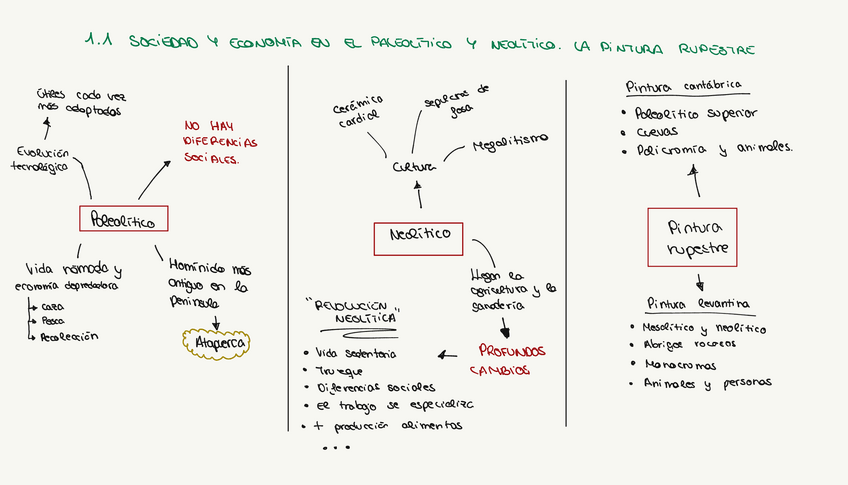 1.1 SOCIEDAD Y ECONOMÍA EN EL PALEOLÍTICO Y NEOLÍTICO. LA PINTURA RUPESTRE
Útiles cada vez
más adaptados
Evolución
tecnológica
NO HAY
DIFERENCIAS
SOCIALES.
Paleolítico
Vida nómada y
economía depredadora
→ caza
→ Pesca
→ Recolección
Homínido más
antiguo en la
península
Atapuerca
cerámica
cardial
sepulcros de
fosa
Megalitismo
Cultura
Neolítico
Llegan la
agricultura y la
ganadería
PROFUNDOS
CAMBIOS
"REVOLUCIÓN
NEOLÍTICA"
• Vida sedentaria
• Trueque
• Diferencias sociales
• El trabajo se especializa
• + producción alimentos
...
Pintura cantábrica
• Paleolítico superior
• Cuevas
• Policromía y animales.
Pintura
rupestre
Pintura levantina
• Mesolítico y neolítico
• Abrigos rocosos
• Monocromas
• Animales y personas